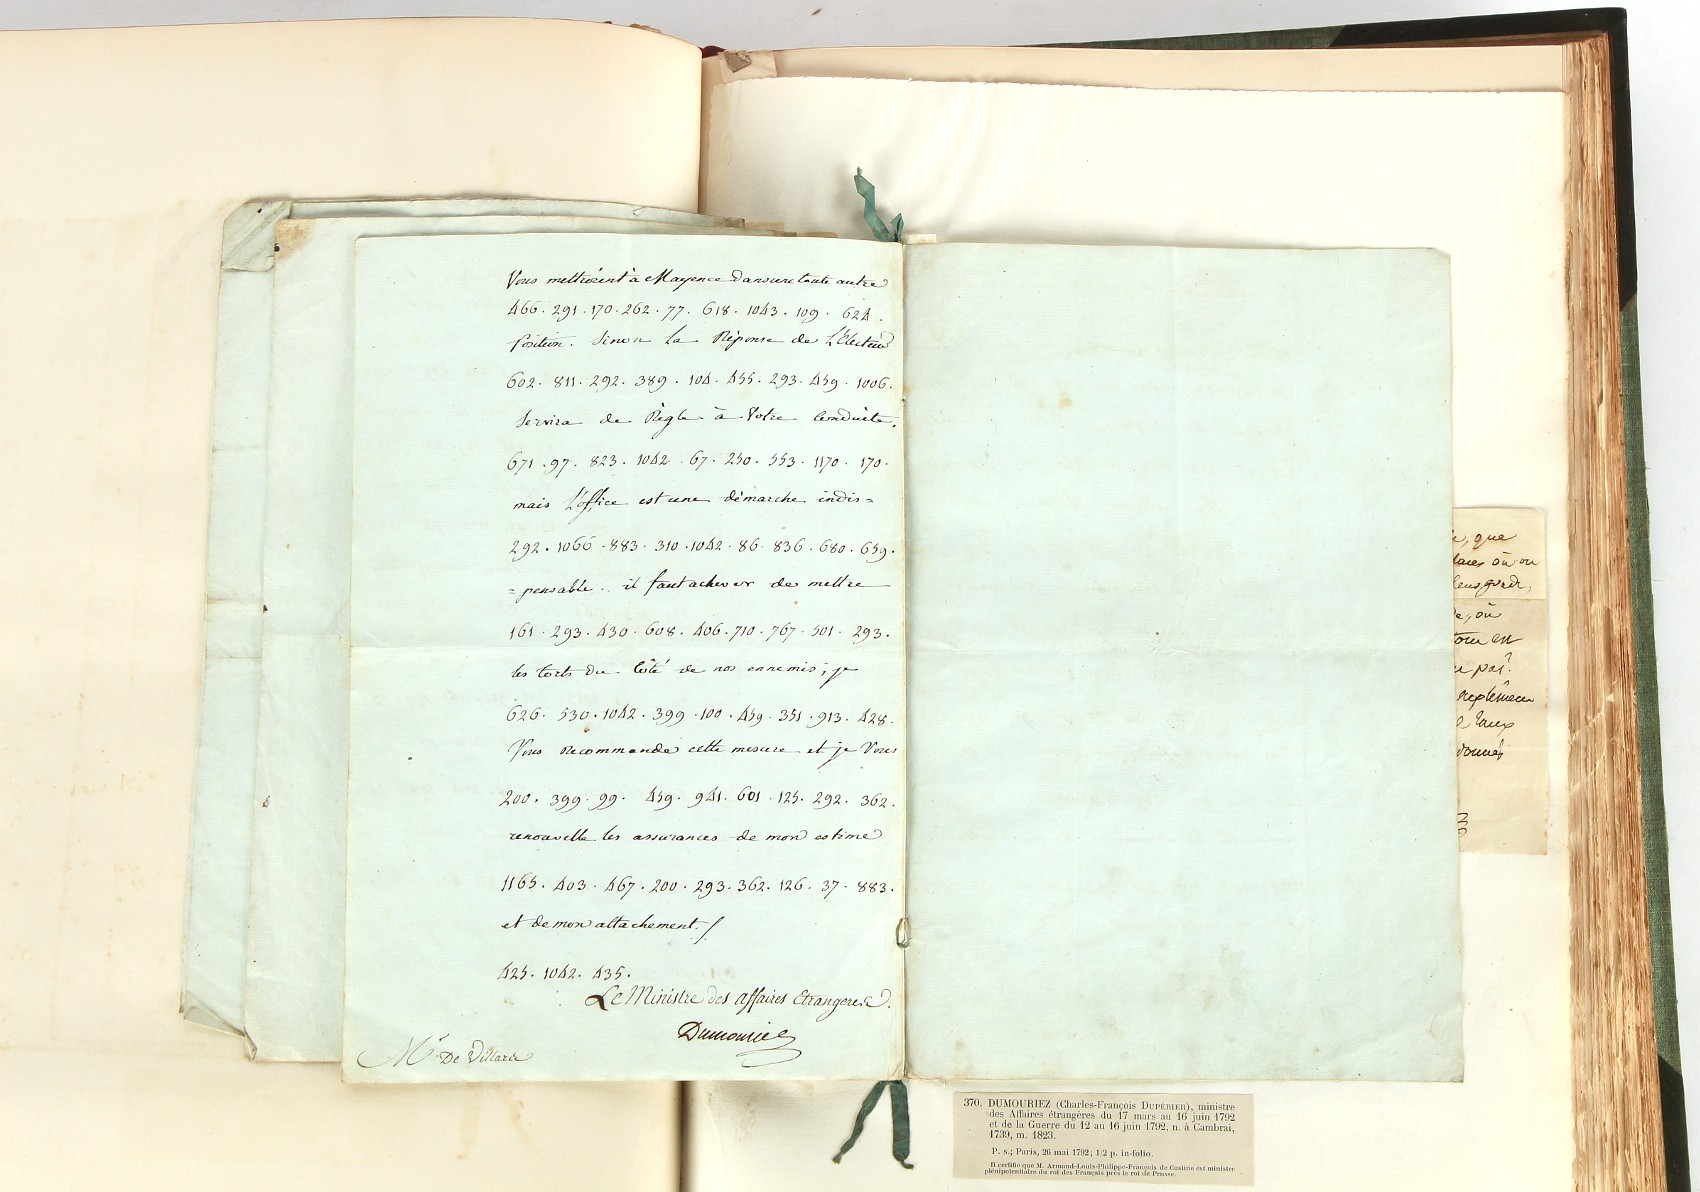 Vous mettroient à Mayence dans une toute autre
466. 291. 170. 262. 77. 618. 1043. 109. 624.
position. Sinon la Réponse de L'Electeur
602. 811. 292. 389. 104. 455. 293. 459. 1006.
Servira de Règle à Votre Conduite,
671. 97. 823. 1042. 67. 250. 553. 1170. 170.
mais L'office est une démarche indis=
292. 1066. 883. 310. 1042. 86. 836. 680. 659.
=pensable. il faut achever de mettre
161. 293. 430. 608. 406. 710. 767. 501. 293.
les torts du Côté de nos ennemis; je
626. 530. 1042. 399. 100. 459. 351. 913. 428.
Vous recommande cette mesure et je Vous
200. 399. 99. 459. 941. 601. 125. 292. 362.
renouvelle les assurances de mon estime
1165. 403. 467. 200. 293. 362. 126. 37. 883.
et de mon attachement./.
425. 1042. 435.
Le Ministre des affaires Etrangeres.
Dumouriez
Mr. De Villars
e, que
où on
de, où
tour en
donnés
370. DUMOURIEZ (Charles-François DUPÉRIER), ministre
des Affaires étrangères du 17 mars au 16 juin 1792
et de la Guerre du 12 au 16 juin 1792, n. à Cambrai,
1739, m. 1823.
P. s.; Paris, 26 mai 1792; 1/2 p. in-folio.
Il certifie que M. Armand-Louis-Philippe-François de Custine est ministre
plénipotentiaire du roi des Français près le roi de Prusse.